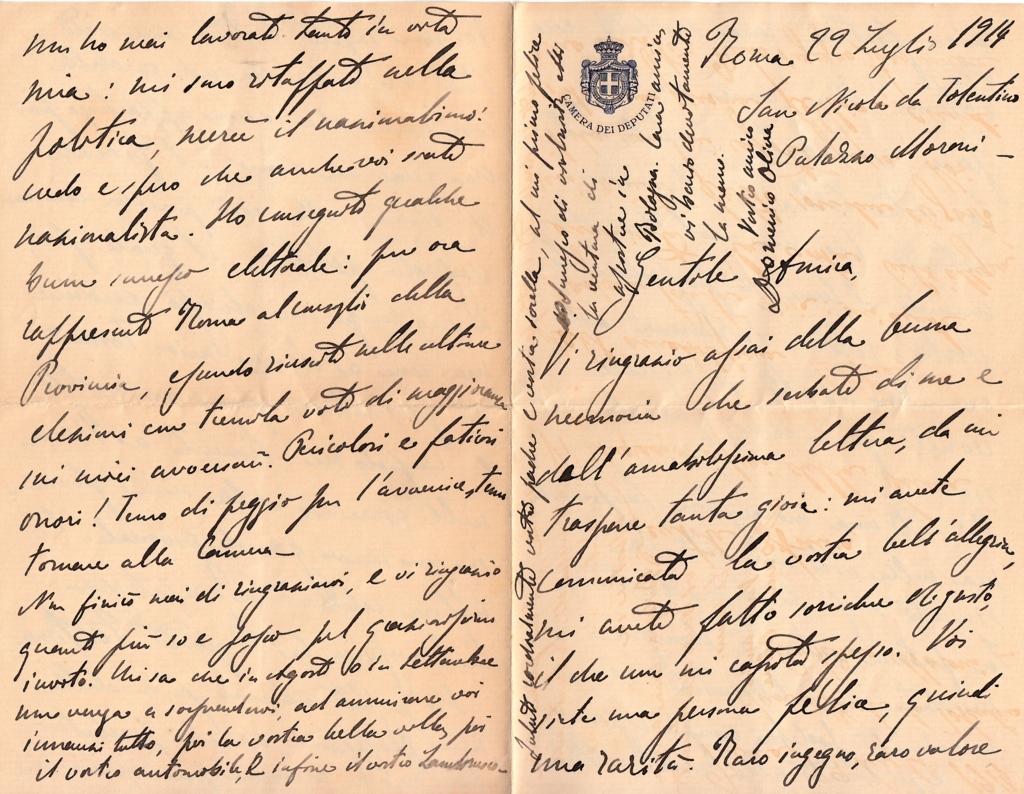 Roma 22 Luglio 1914
San Nicola da Tolentino
Palazzo Moroni -
CAMERA DEI DEPUTATI
Gentile Amica,
Vi ringrazio assai della buona
memoria che serbate di me e
dall'amabilissima lettera, da cui
traspare tanta gioia: mi avete
comunicato la vostra bell'allegria,
mi avete fatto sorridere di gusto,
il che non mi capita spesso. Voi
siete una persona felice, quindi
una rarità. Raro ingegno, raro valore
non ho mai lavorato tanto in vita
mia: mi sono rituffato nella
politica, mercè il nazionalismo!
credo e spero che anche voi siate
nazionalista. Ho conseguito qualche
buon successo elettorale: per ora
rappresento Roma al consiglio della
Provincia, essendo riuscito nelle ultime
elezioni con tremila voti di maggioranza
sui miei avversari. Pericolosi e faticosi
onori! Temo di peggio per l'avvenire, temo
tornare alla Camera -
Non finirò mai di ringraziarvi, e vi ringrazio
quanto più so e posso pel graziosissimo
invito. Chi sa che in agosto o in settembre
non venga a sorprendervi, ad ammirare voi
innanzi tutto, poi la vostra bella villa, poi
il vostro automobile, e infine il vostro
Salutate cordialmente vostro padre e vostra sorella, ed al primo
successo di
la ventura di
Bologna. Cara amica
vi bacio devotamente
la mano.
Vostro amico
Domenico Oliva